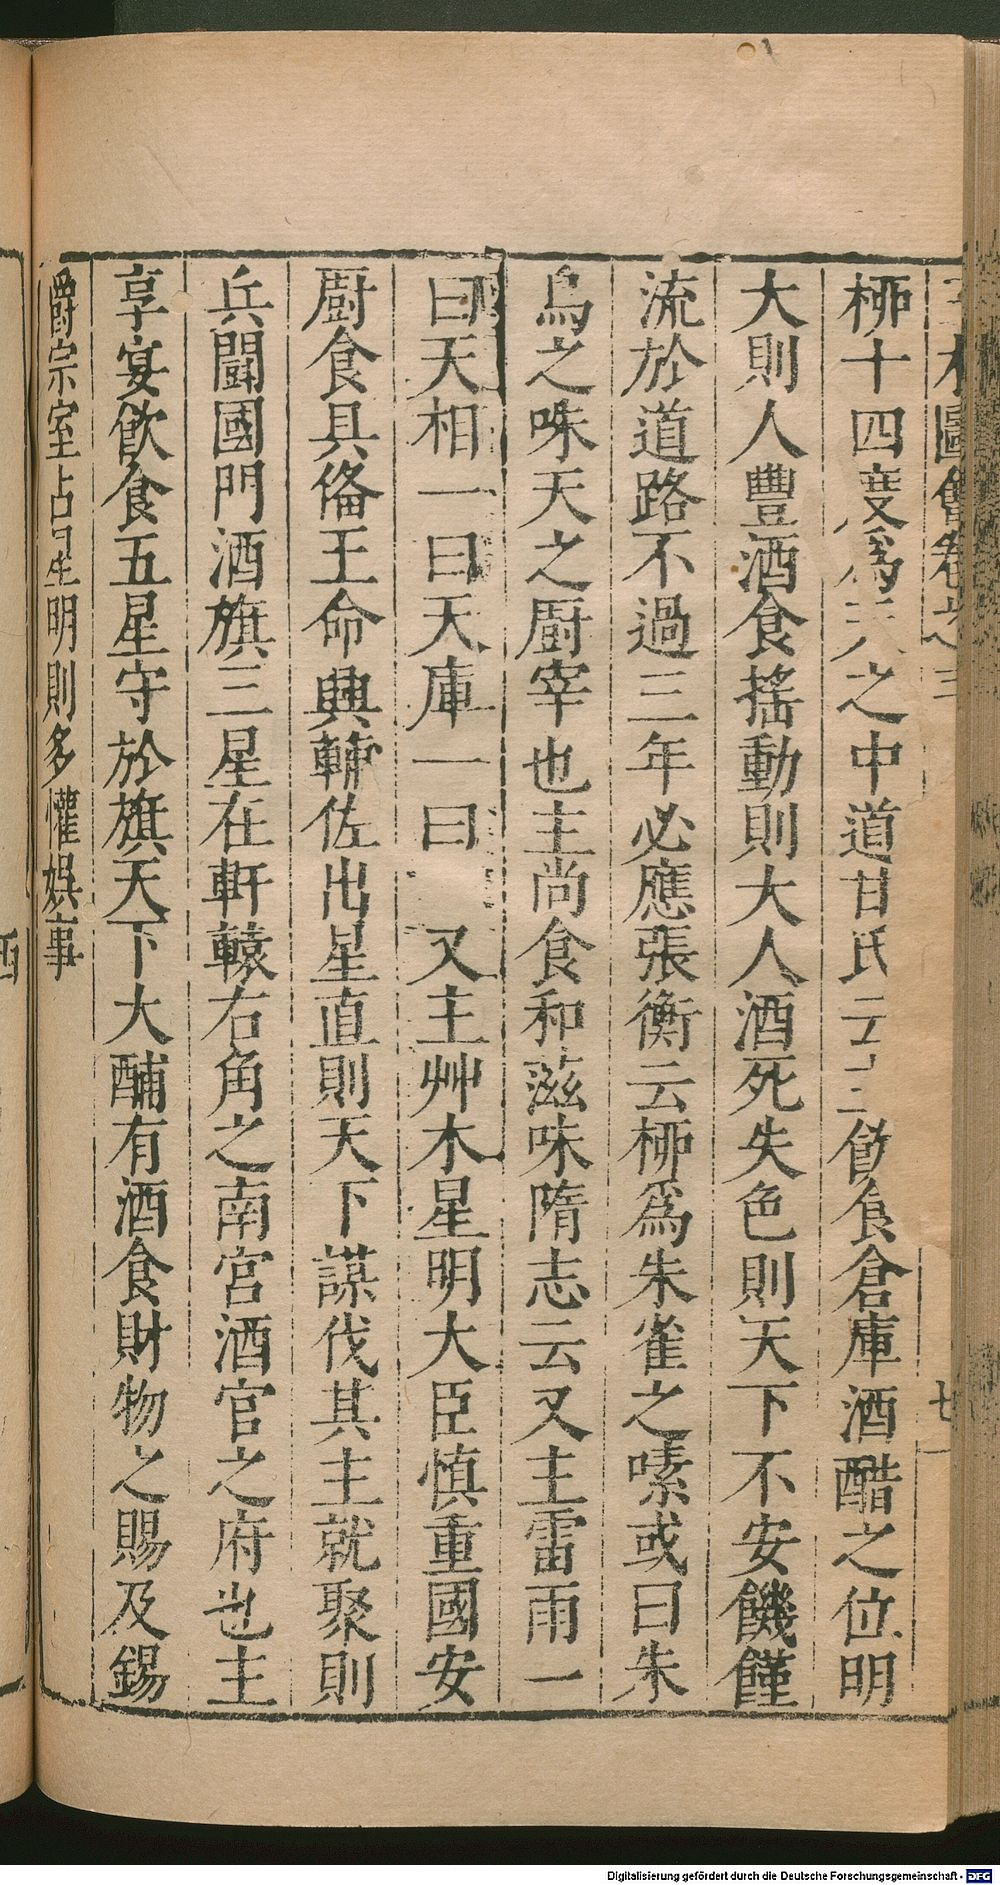 圖會卷之三
桺十四度爲天之中道甘氏云主飲食倉庫酒醋之位明
大則人豐酒食搖動則大人酒死失色則天下不安饑饉
流於道路不過三年必應張衡云桺爲朱雀之嗉或曰朱
鳥之咮天之厨宰也主尚食和滋味隋志云又主雷雨一
曰天相一曰天庫一曰 又主艸木星明大臣慎重國安
厨食具俻王命興輔佐出星直則天下謀伐其主就聚則
兵鬪國門酒旗三星在軒轅右角之南宫酒官之府也主
享宴飲食五星守於旗天下大酺有酒食財物之賜及錫
爵宗室占星明則多懽娯事
七一
Digitalisierung gefördert durch die Deutsche Forschungsgemeinschaft - DFG